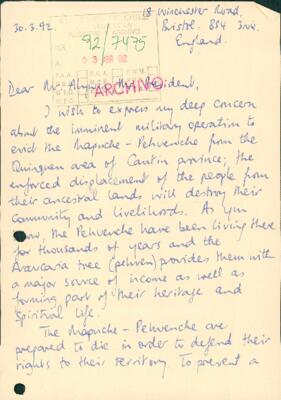 18 Winchester Road,
30.3.92. Bristol. BS4 3NH.
England.
CHILE
92/7475
03 ABR 92
ARCHIVO
Dear Mr. President,
I wish to express my deep concern
about the imminent military operation to
evict the Mapuche - Pehuenche from the
Quinquen area of Cautin province; the
enforced displacement of the people from
their ancestral lands will destroy their
community and livelihoods. As you
know, the Pehuenche have been living there
for thousands of years and the
Araucaria tree (pehuen) provides them with
a major source of income as well as
forming part of their heritage and
spiritual life.
The Mapuche - Pehuenche are
prepared to die in order to defend their
rights to their territory. To prevent a